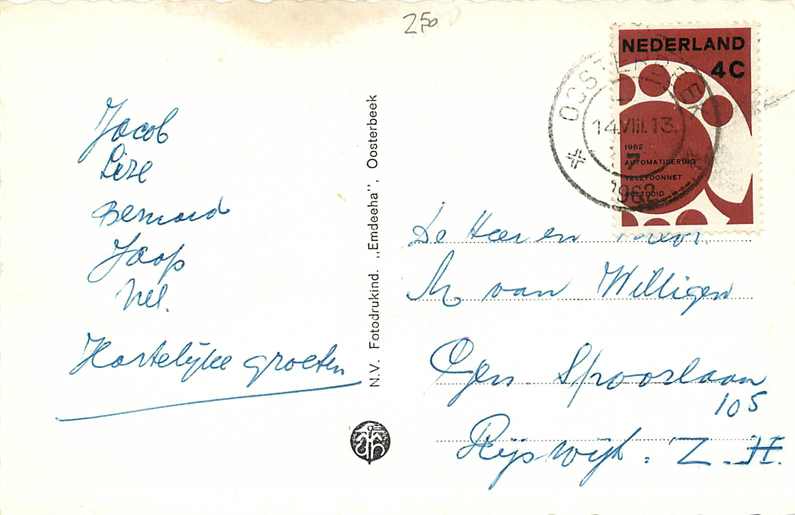 2,50
Jacob
Lize
Bernard
Jaap
Nel.
Hartelijke groeten
N.V. Fotodrukind. „Emdeeha”, Oosterbeek
NEDERLAND
4C
1962
AUTOMATISERING
TELEFOONNET
VOLTOOID
OOSTERBEEK
14.VIII.13
1962
De Heer en Mevr.
M van Willigen
Gen Spoorlaan
105
Rijswijk. Z.H.